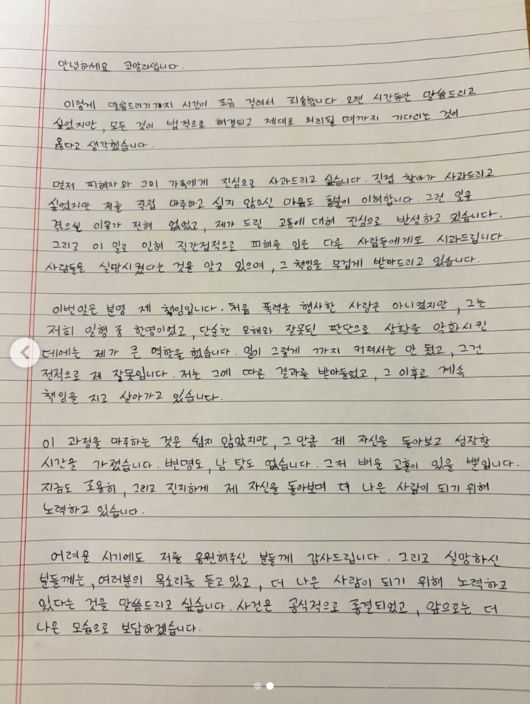 안녕하세요 코알라입니다.
이렇게 말씀드리기까지 시간이 조금 걸려서 죄송합니다. 오랜 시간동안 말씀드리고
싶었지만, 모든 것이 법적으로 해결되고 제대로 처리될 때까지 기다리는 것이
옳다고 생각했습니다.
먼저 피해자와 그의 가족에게 진심으로 사과드리고 싶습니다. 직접 찾아가 사과드리고
싶었지만 저를 직접 마주하고 싶지 않으신 마음도 충분히 이해합니다. 그런 일을
겪으실 이유가 전혀 없었고, 제가 드린 고통에 대해 진심으로 반성하고 있습니다.
그리고 이 일로 인해 직간접적으로 피해를 입은 다른 사람들에게도 사과드립니다.
사람들을 실망시켰다는 것을 알고 있으며, 그 책임을 무겁게 받아드리고 있습니다.
이번일은 분명 제 책임입니다. 처음 폭력을 행사한 사람은 아니였지만, 그는
저희 일행 중 한명이었고, 단순한 오해와 잘못된 판단으로 상황을 악화시킨
데에는 제가 큰 역할을 했습니다. 일이 그렇게 까지 커져서는 안 됐고, 그건
전적으로 제 잘못입니다. 저는 그에 따른 결과를 받아들였고, 그 이후로 계속
책임을 지고 살아가고 있습니다.
이 과정을 마주하는 것은 쉽지 않았지만, 그 만큼 제 자신을 돌아보고 성장할
시간을 가졌습니다. 변명도, 남 탓도 없습니다. 그저 배운 교훈이 있을 뿐입니다.
지금도 조용히, 그리고 진지하게 제 자신을 돌아보며 더 나은 사람이 되기 위해
노력하고 있습니다.
어려운 시기에도 저를 응원해주신 분들께 감사드립니다. 그리고 실망하신
분들께는, 여러분의 목소리를 듣고 있고, 더 나은 사람이 되기 위해 노력하고
있다는 것을 말씀드리고 싶습니다. 사건은 공식적으로 종결되었고, 앞으로는 더
나은 모습으로 보답하겠습니다.